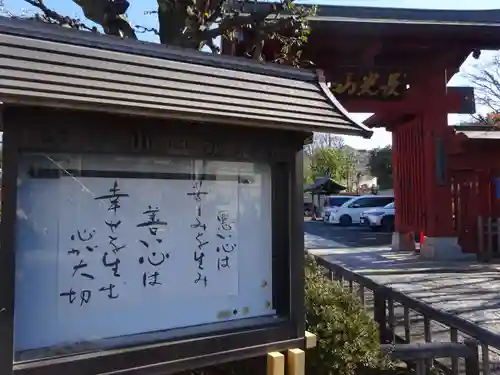 悪い心は
苦しみを生み
善い心は
幸せを生む
心が大切
長光山